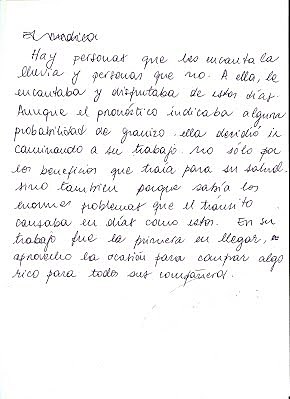 Hay personas que les encanta la
lluvia y personas que no. A ella, le
encantaba y disfrutaba de estos días.
Aunque el pronóstico indicaba alguna
probabilidad de granizo ella decidió ir
caminando a su trabajo. no sólo por
los beneficios que traía para su salud.
sino también porque sabía los
enormes problemas que el tránsito
causaba en días como estos. En su
trabajo fue la primera en llegar,
aprovecho la ocasión para comprar algo
rico para todos sus compañeros.